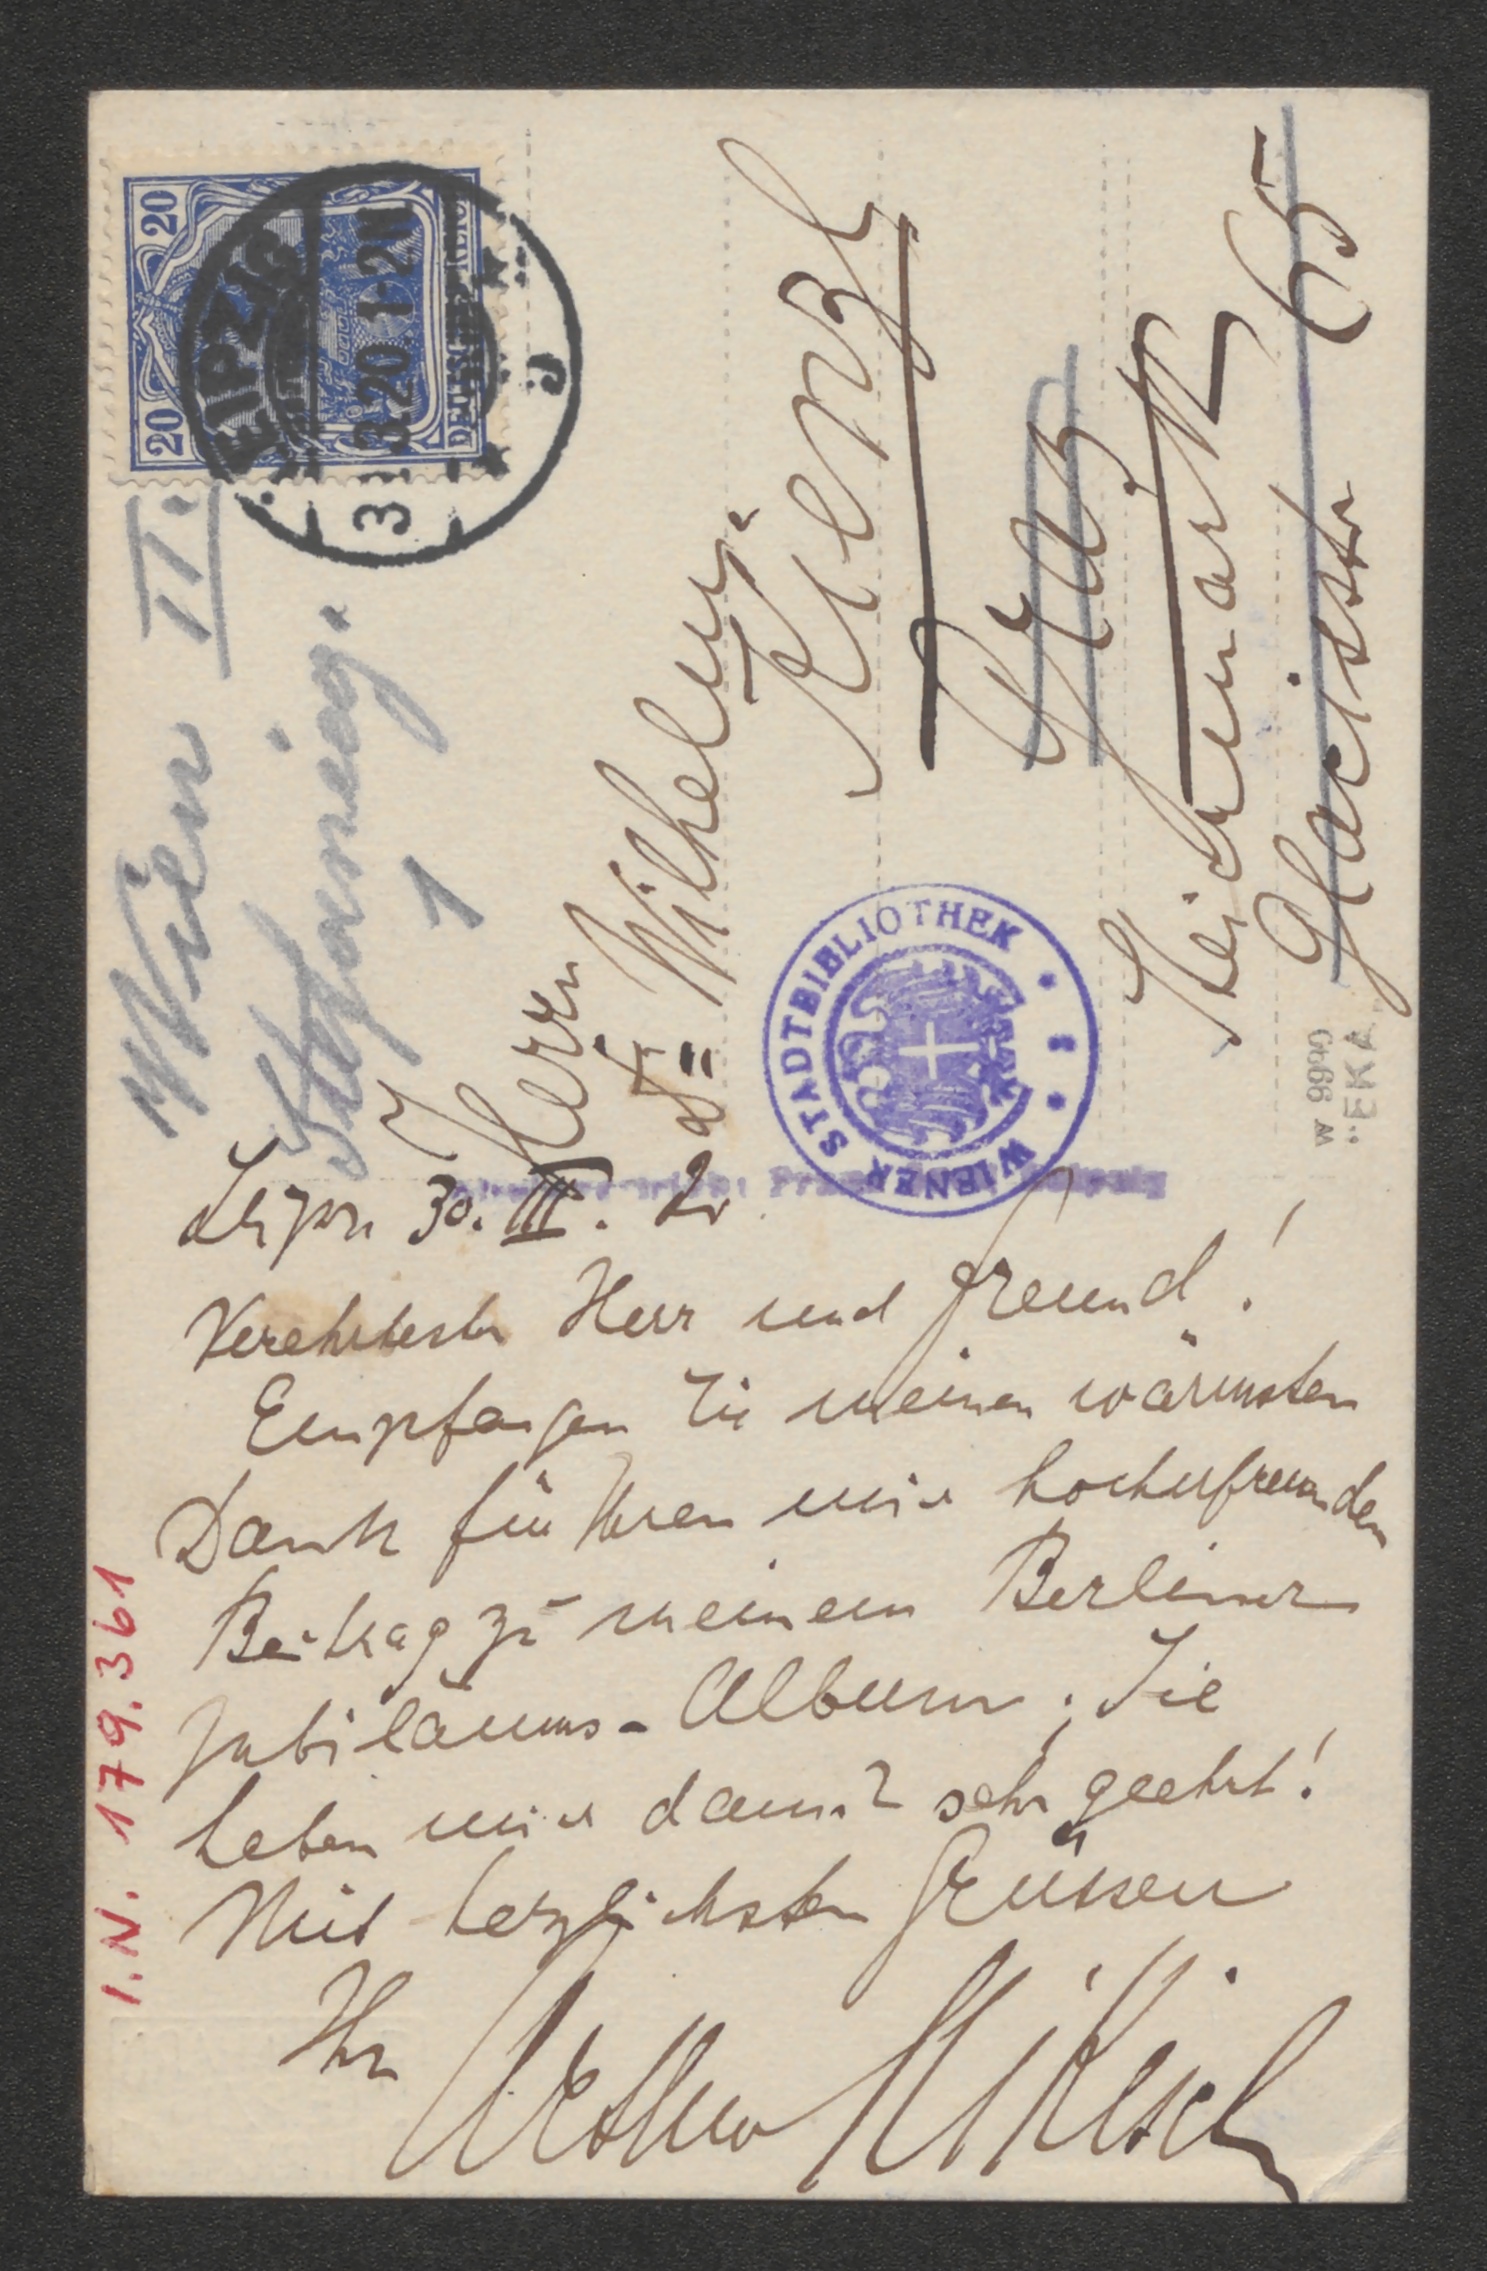 20 20
DEUTSCHES REICH
LEIPZIG
3.20 1-2N
Wien II.
Stefanieg.
1
Herrn
Dr. Wilhelm
Kienzl
Graz
Steiermark
Glacisstr 65
WIENER STADTBIBLIOTHEK
"EKA"
Leipzi 30. III. 20
Verehrtester Herr und Freund!
Empfangen Sie meinen wärmsten
Dank für Ihren mir hocherfreuenden
Beitrag zu meinem Berliner
Jubiläums-Album; Sie
haben mich damit sehr geehrt!
Mit herzlichsten Grüssen
Ihr Arthur Nikisch
I.N. 179.361